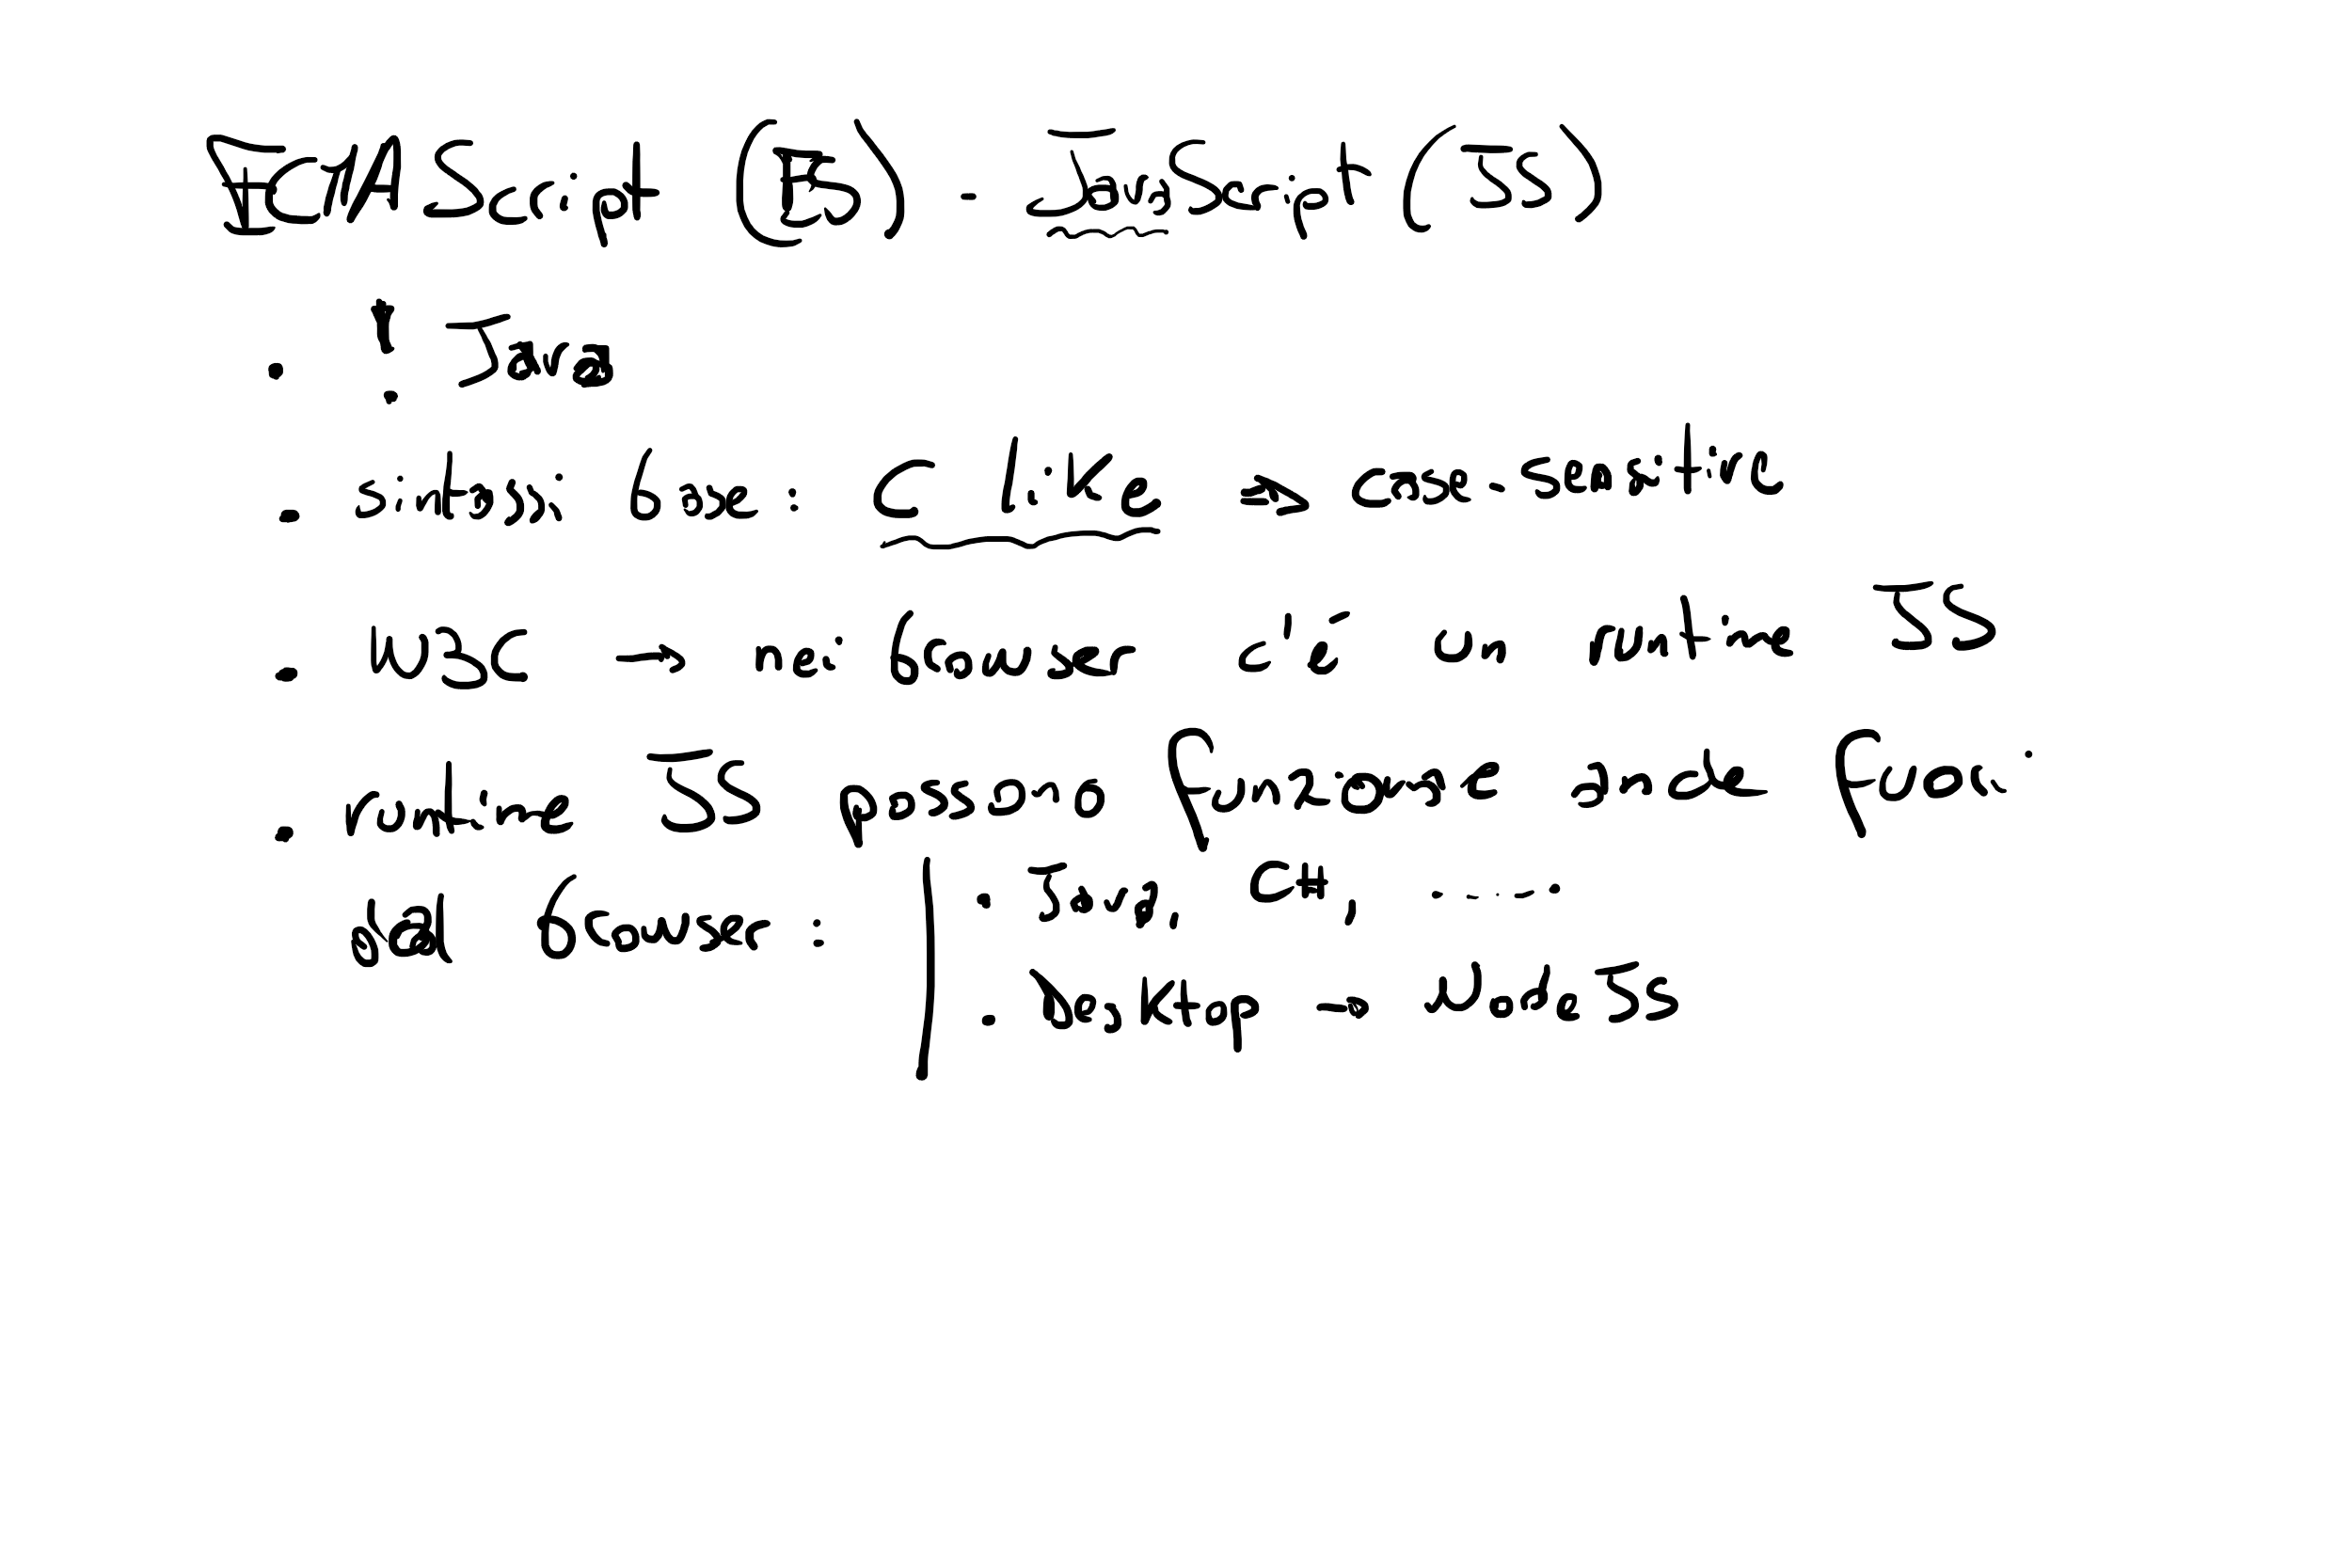 ECMAScript (ES) - JavaScript (JS)
. ! Java
. sintassi base: C like => case-sensitive
. W3C -> nei browser c'è un runtime JS
. runtime JS possono funzionare anche fuori
dal browser :
. Java, C#, .....
. Desktop -> NodeJS